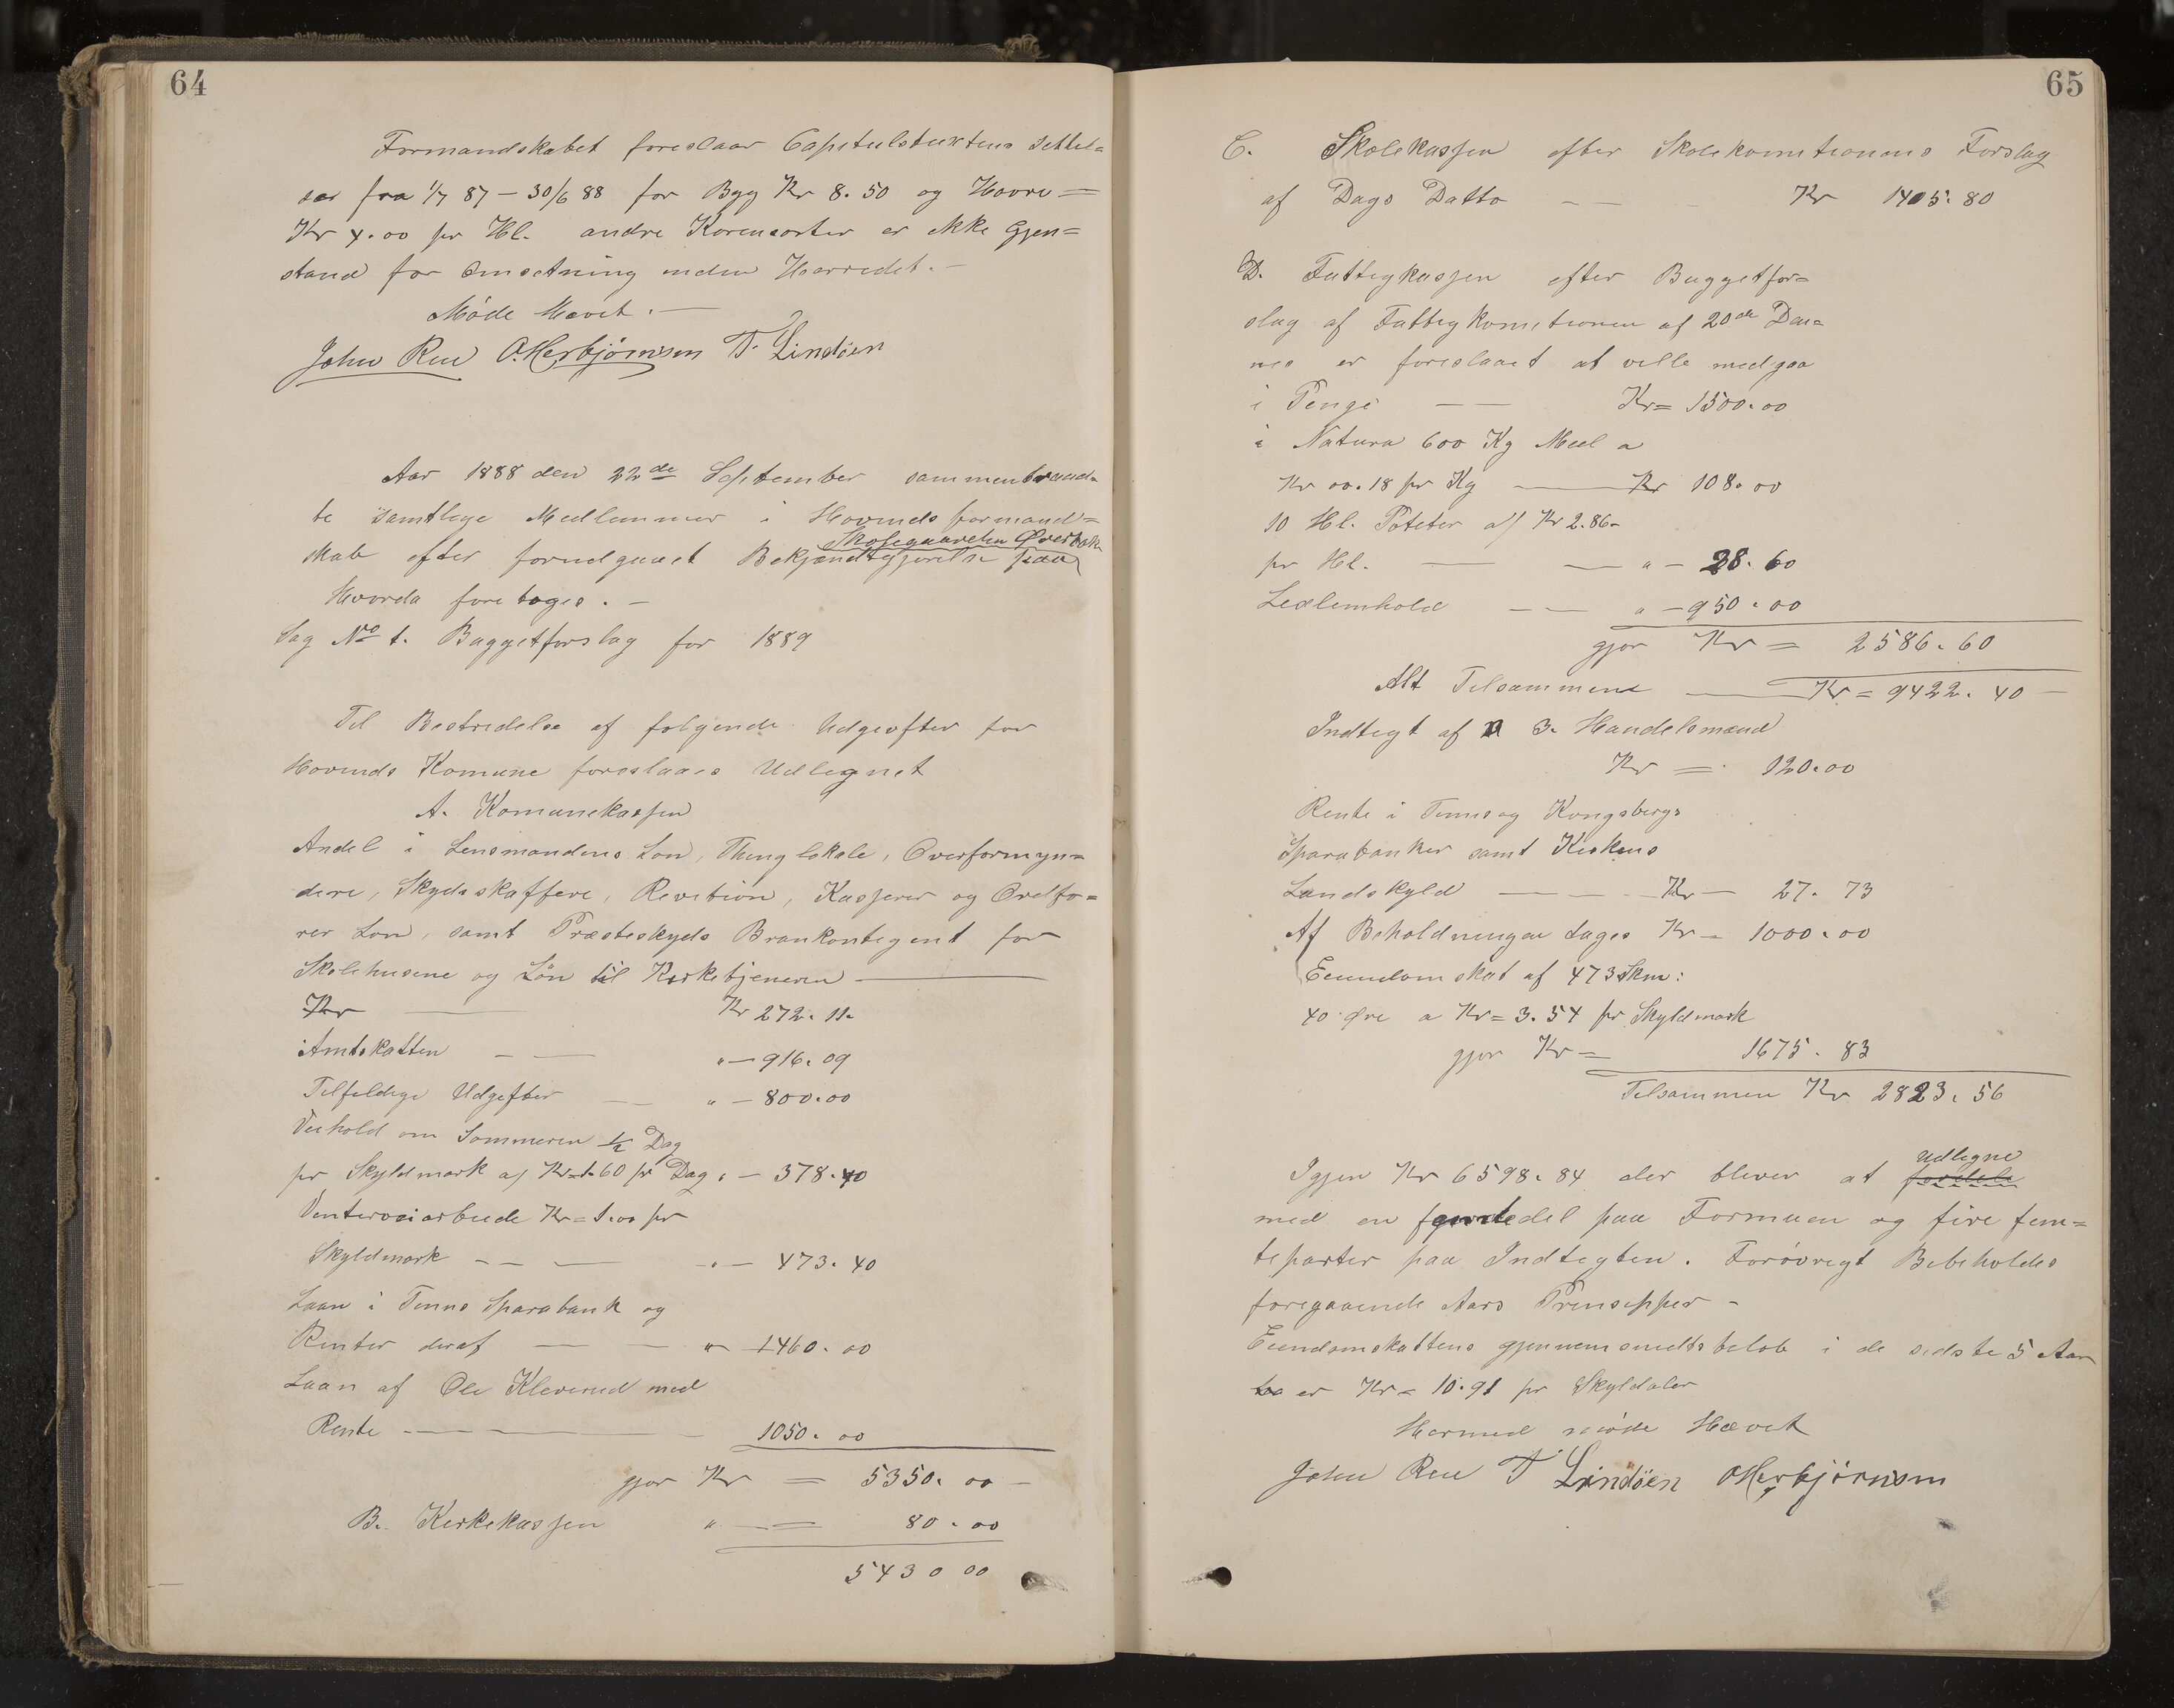 64
Formandskabet foreslaar Capitulstaxtens Settel=
ser fra 1/7 87 — 30/6 88 for Byg Kr 8.50 og Havre =
Kr 4.00 pr Hl. andre Kornsorter er ikke Gjen=
stand for Omsetning inden Herredet. —
Møde Hævet. —
John Rue O. Herbjørnsen T. Lindöen
Aar 1888 den 22de September sammentraad=
te samtlige Medlemmer i Hovinds formand=
skab efter forudgaaet Bekjendtgjørelse paa
Skysgaarden Øverbøk
Hvorda foretoges. —
Sag No 1. Buggetforslag for 1889
Til Bestridelse af følgende Udgifter for
Hovinds Komune foreslaaes Udlignet
A. Komunekassen
Andel i Lensmandens Løn, Thinglokale, Overformyn=
dere, Skydsskaffere, Revition, Kasserer og Ordfø=
rer Løn, samt Præsteskyds Brankontigent for
Skolehusene og Løn til Kirketjeneren —
Kr — Kr 272. 11.
Amtskatten — — " — 916. 09
Tilfeldige Udgifter — " — 800.00
Veihold om Sommeren 1/2 Dag
pr Skyldmark a/ Kr 1.60 pr Dag " — 378.40
Vinterveiarbeide Kr = 1.00 pr
Skyldmark — — — " — 473. 40
Laan i Tinns Sparebank og
Renter deraf — — " 1460. 00
Laan af Ole Kleverud med
Rente — — — 1050. 00
gjør Kr = 5350. 00 —
B. Kirkekassen " — = 80. 00
5430 00
65
C. Skolekassen efter Skolekomitionens Forslag
af Dags Datto — — Kr 1405. 80
D. Fattigkassen efter Buggetfor=
slag af Fattigkomitionen af 20de Den=
nes er foreslaaet at ville medgaa
i Penge — — Kr = 1500.00
i Natura 600 Kg Meel a
Kr 00.18 pr Kg — Kr 108. 00
10 Hl. Poteter a/ Kr 2.86 =
pr Hl. — — " — 28. 60
Leilemhold — — " — 950. 00
gjør Kr = 2586. 60
Alt Tilsammens — Kr = 9422. 40 —
Indtegt af 3. Handelsmænd
Kr = 120.00
Rente i Tinns og Kongsbergs
Sparebanker samt Kirkens
Landskyld — — Kr — 27. 73
Af Beholdningen tages Kr = 1000. 00
Eiendomskat af 473 Skm:
40 Øre a Kr = 3.54 pr Skyldmark
gjør Kr = 1675. 83
Tilsammen Kr 2823. 56
Igjen Kr 6598. 84 der bliver at fordele
udligne
med en femtedel paa Formuen og fire fem=
teparter paa Indtegten. Forøvrigt Bibeholdes
foregaaende Aars Prinsipper —
Eiendomskattens gjennemsnidtsbeløb i de sidste 5 Aar
er Kr = 10.91 pr Skyldaler
Hermed møde Hævet
John Rue T Lindöen O Herbjörnsen